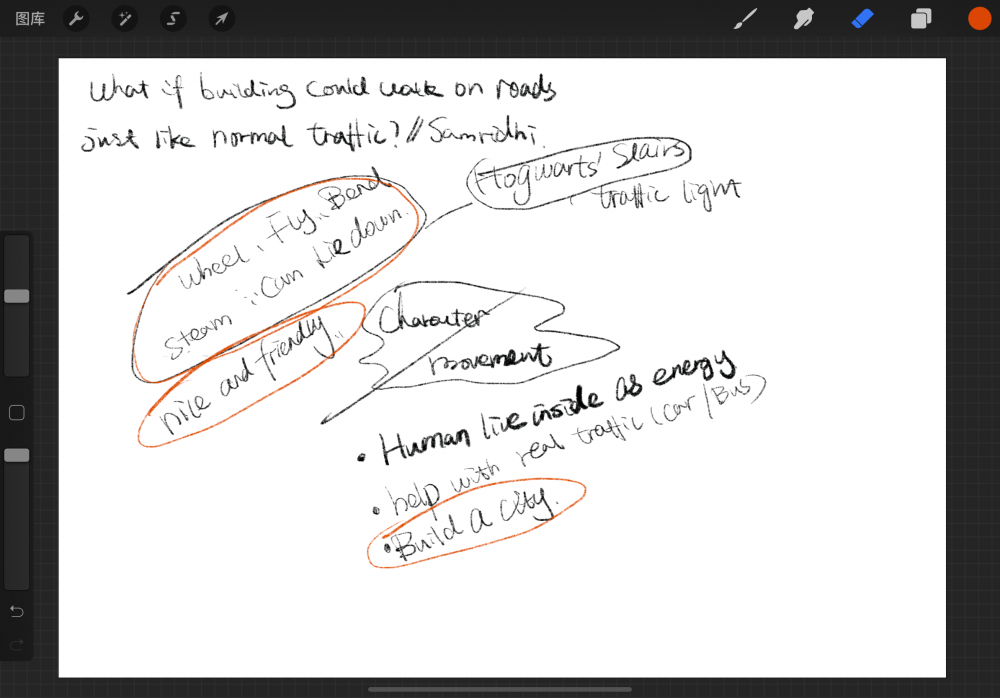 图库
What if building could walk on roads
just like normal traffic? // Samridhi.
Hogwarts' Stairs
traffic light
wheel、Fly、Bend
steam ... Can Lie down.
nice and friendly..
Charauter
movement
• Human live inside as energy
• help with real traffic (car / Bus)
• Build a city.